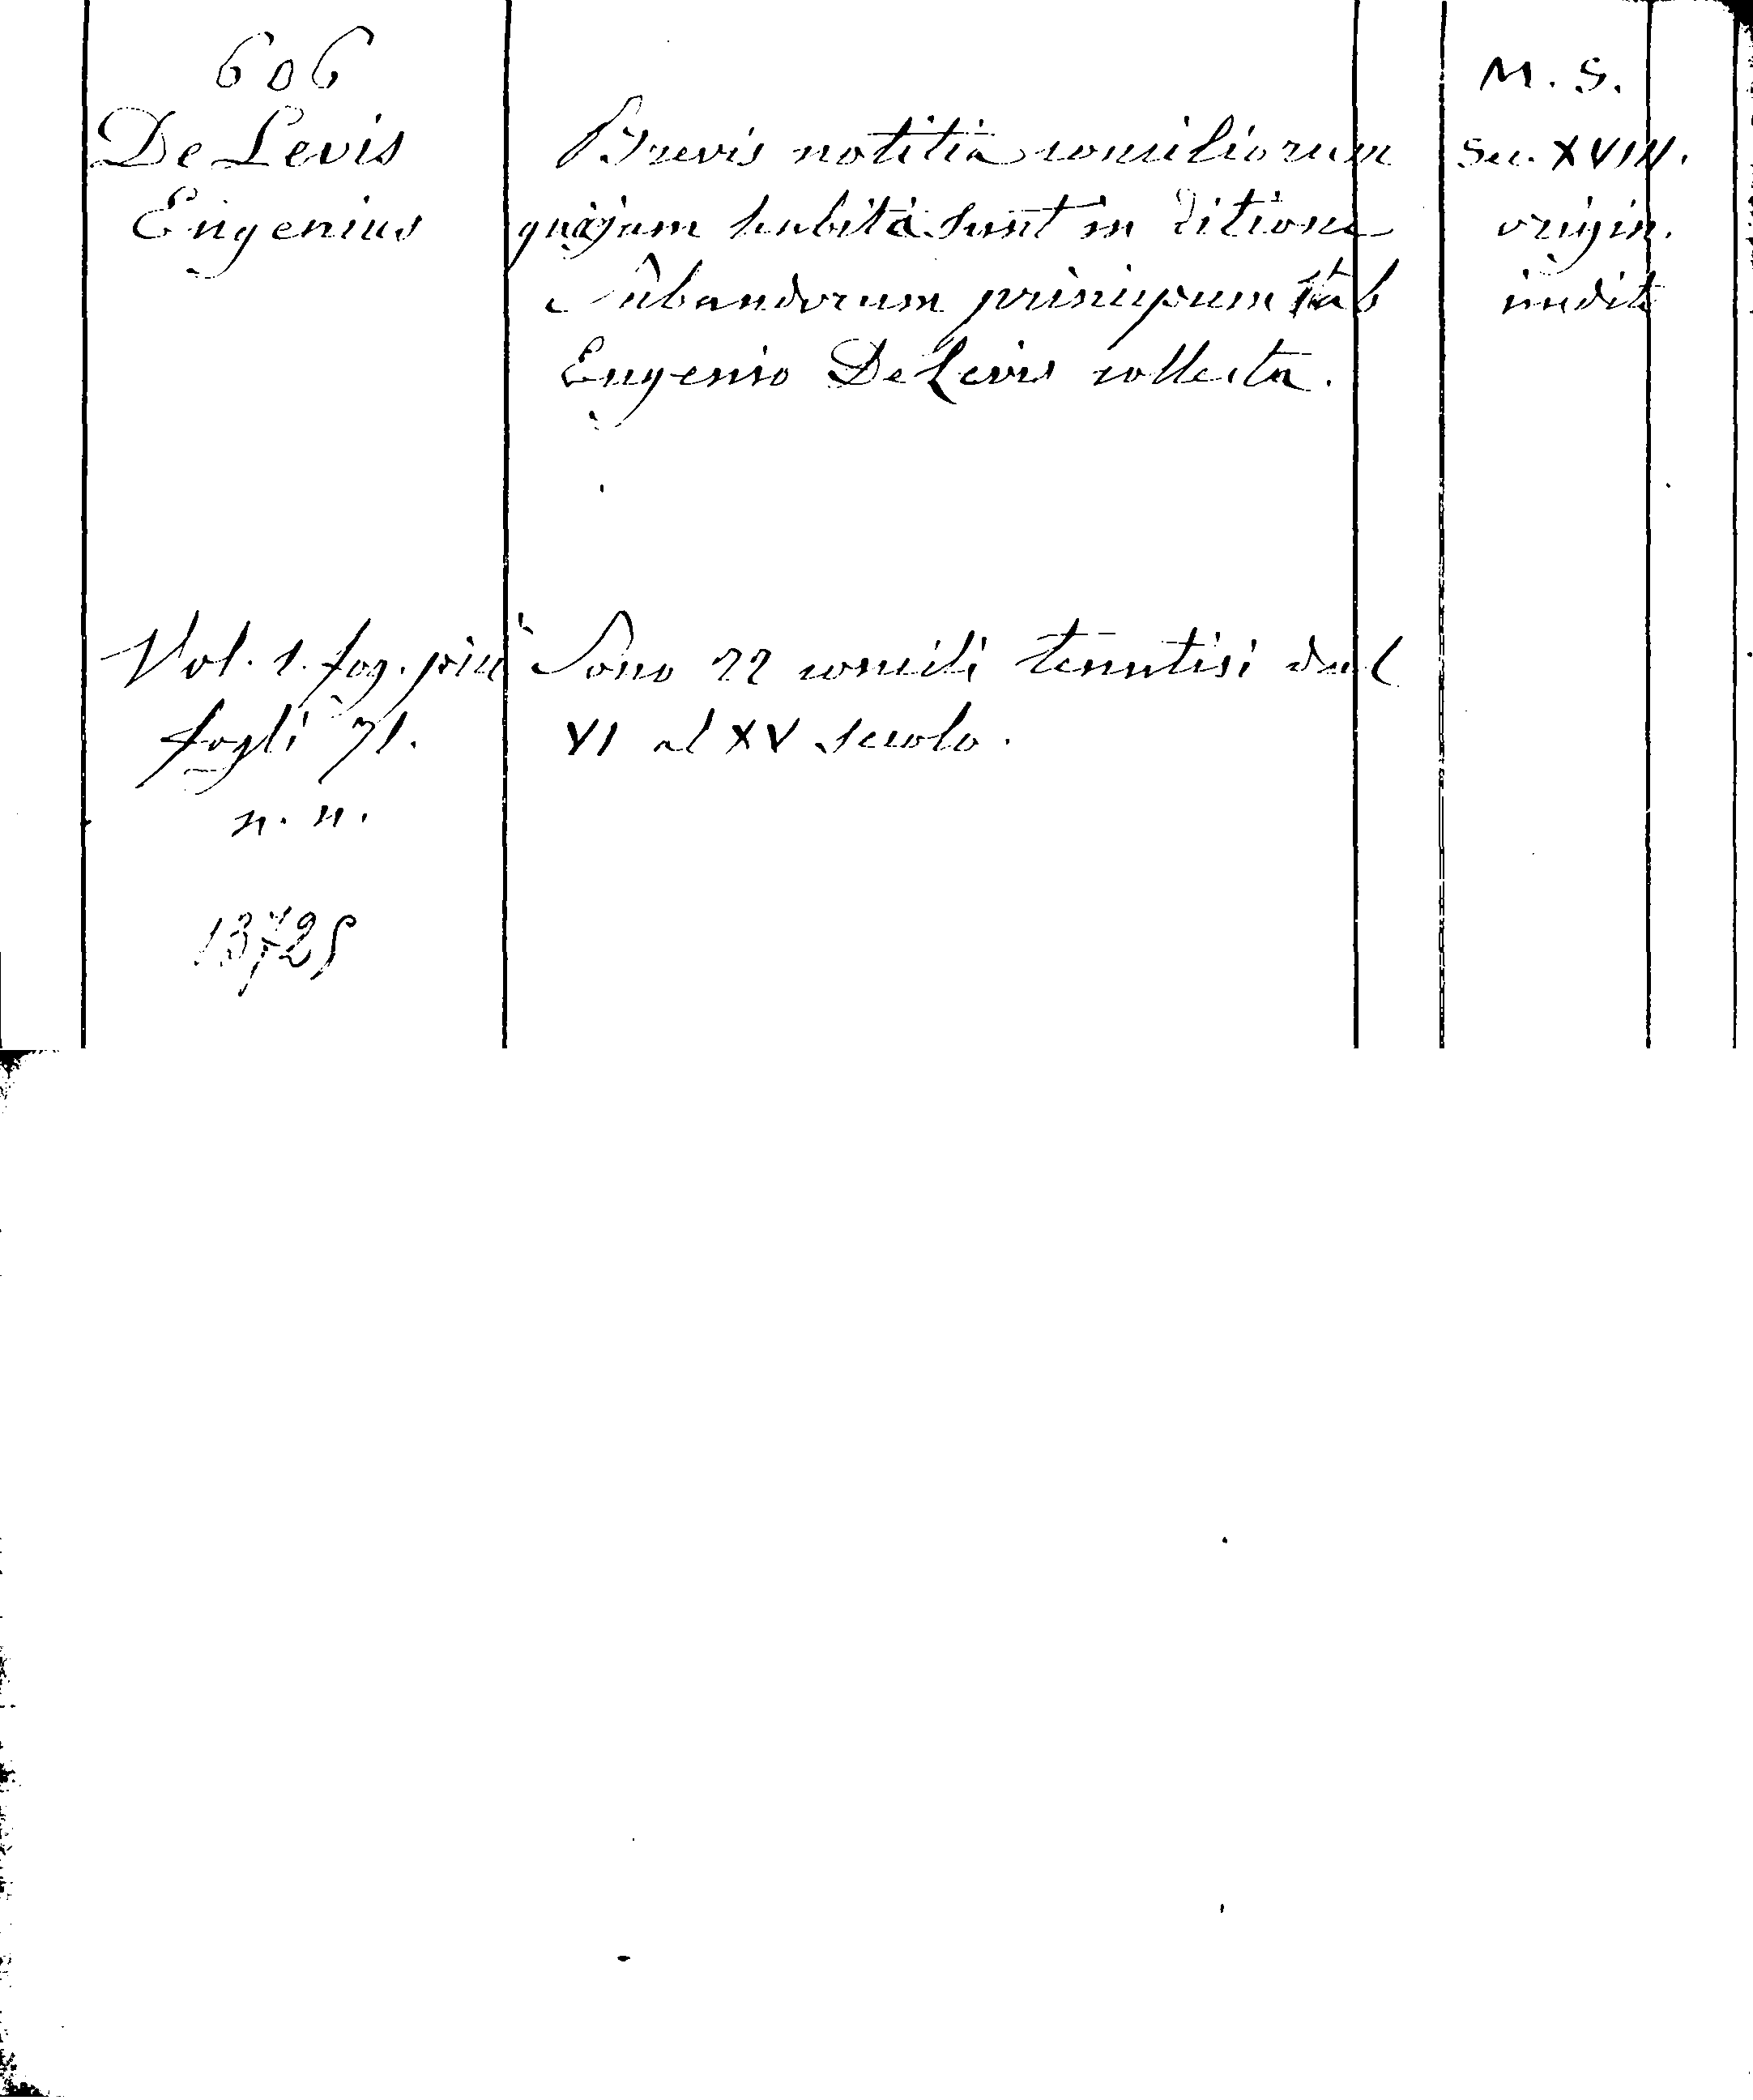 606
De Levis
Eugenius
Brevis notitia conciliorum
quae jam habita sunt in ditione
Sabaudorum principum ab
Eugenio De Levis collecta.
M. S.
Sec. XVIII.
origin.
inedit
Vol. 1. fog. più
fogli 71.
n. n.
13725
Sono 22 concili tenutisi dal
VI al XV secolo.